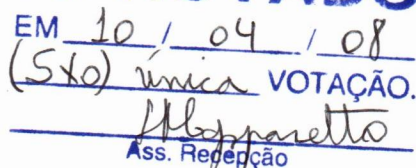 EM 10 / 04 / 08
(5x0) única VOTAÇÃO.
Ass. Recepção